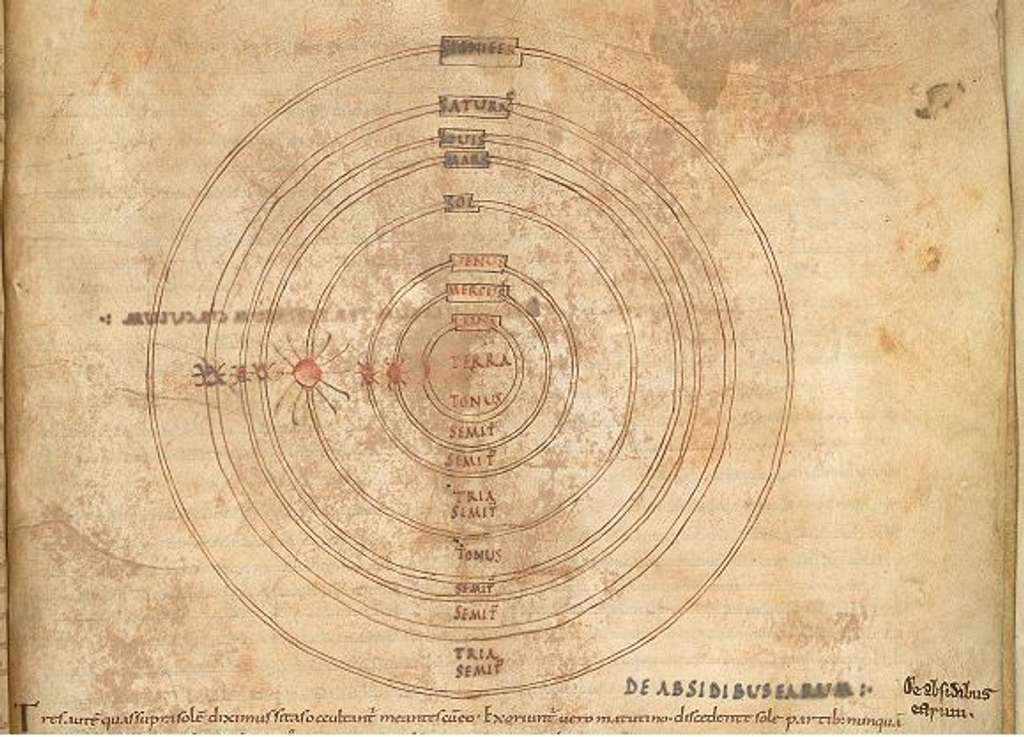 SIGNIFER
SATURN
IOUIS
MARS
SOL
VENUS
MERCUR
LUNA
TERRA
TONUS
SEMIT
SEMIT
TRIA
SEMIT
TONUS
SEMIT
SEMIT
TRIA
SEMIT
DE ABSIDIBUS EARUM :·
De absidibus
earum.
Tres. autē quas supra solē diximus sitas occultant̄ meantes cū eo · Exoriunt̄ uero matutino · discedente sole partib: nunquā